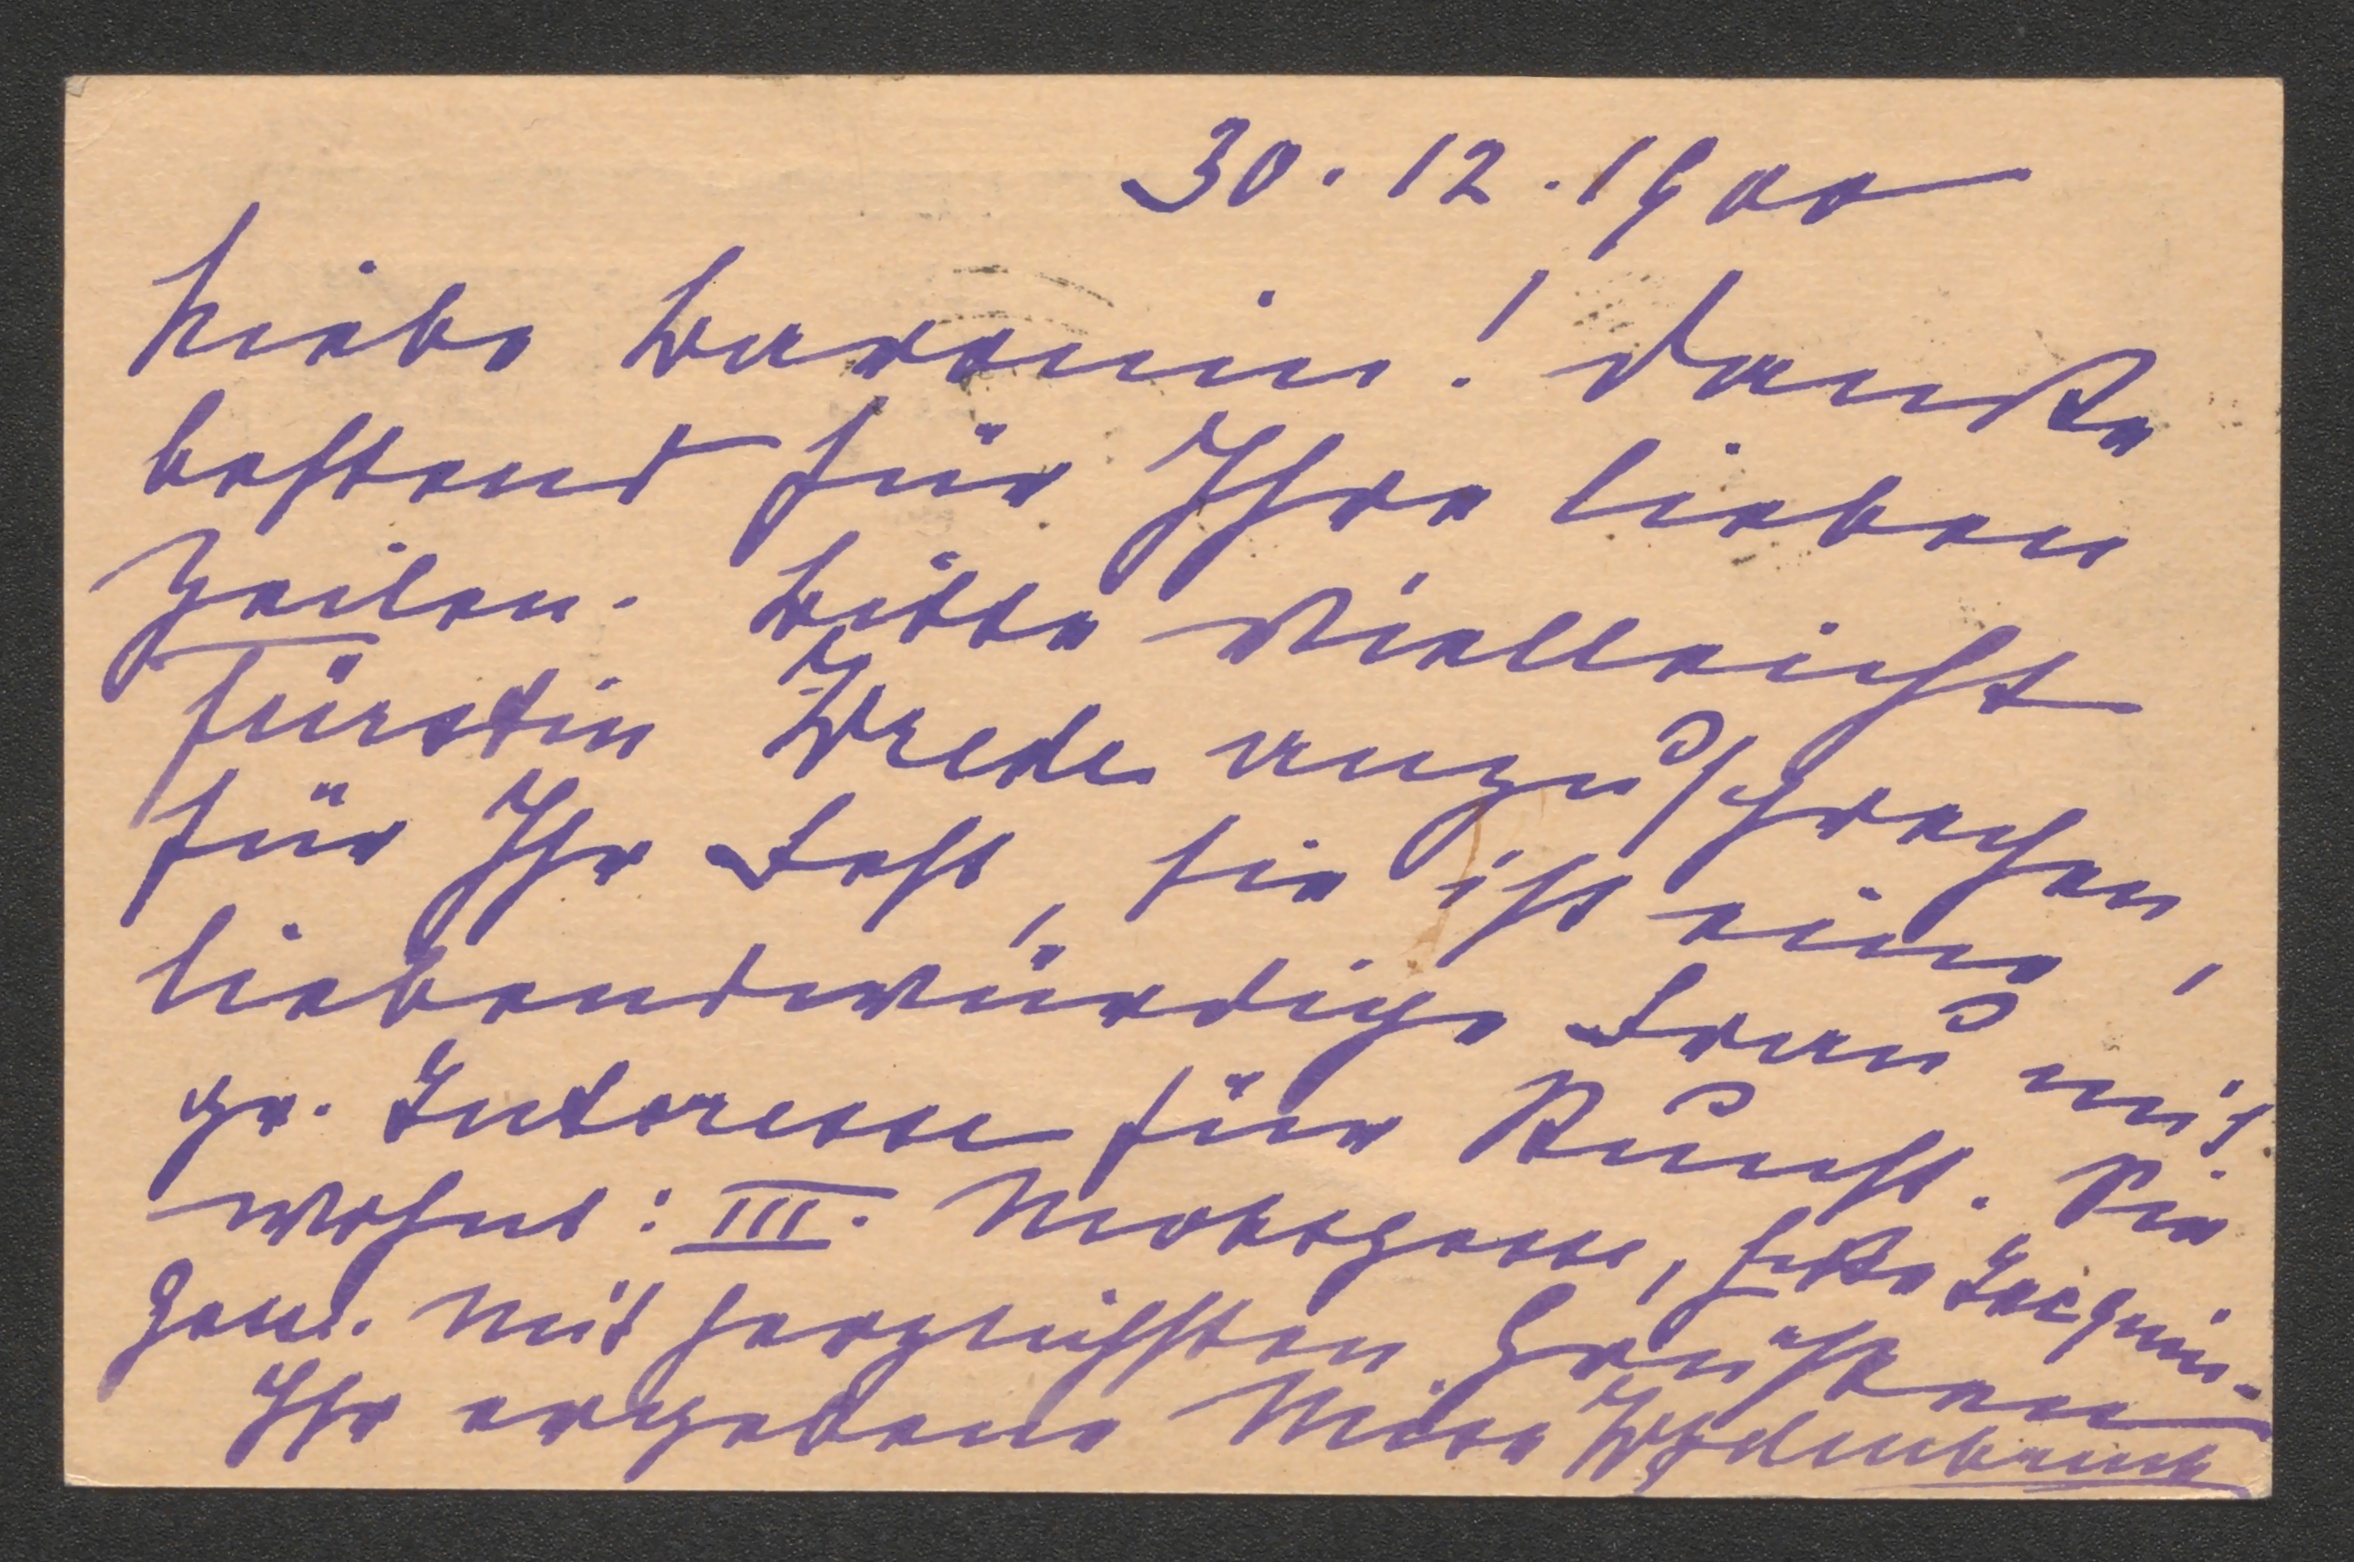 30.12.1900
Liebe Baronin! Danke
bestens für Ihre lieben
Zeilen. Bitte vielleicht
Fürstin Wrede anzusprechen,
für Ihr Fest, sie ist eine,
liebenswürdige Frau mit
gr. Interesse für Kunst. Sie
wohnt: III. Mohsgasse, Ecke Jacquin-
gasse. Mit herzlichsten Grüßen
Ihr ergebene Misa Wydenbruck